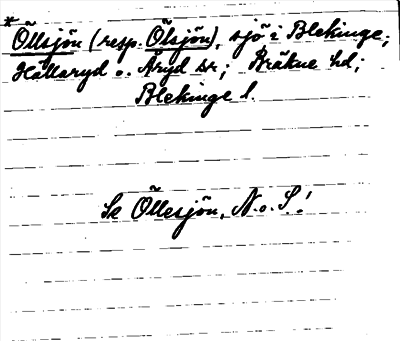 * Öllsjön (resp. Ölsjön), sjö i Blekinge;
Hällaryd o. Åryd sr; Bräkne hd;
Blekinge l.
Se Öllesjön, N. o. S.!